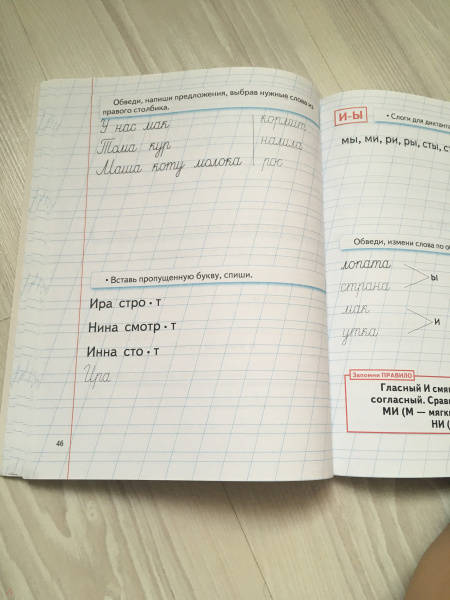 Обведи, напиши предложения, выбрав нужные слова из
правого столбика.
У нас мак кормит
Тома кур налила
Маша коту молока рос
• Вставь пропущенную букву, спиши.
Ира стро • т
Нина смотр • т
Инна сто • т
Ира
46
И-Ы
• Слоги для диктанта
мы, ми, ри, ры, сты,
Обведи, измени слова по
лопата
страна
ы
мак
утка
и
Запомни ПРАВИЛО
Гласный И
согласный.
МИ (М —
НИ (